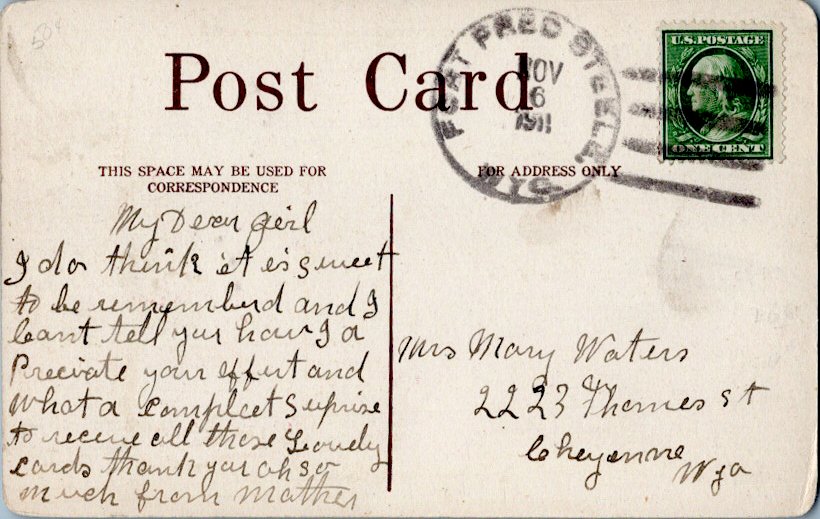 50¢
Post Card
FORT FRED STEELE
NOV
6
1911
WYO.
U.S. POSTAGE
ONE CENT
THIS SPACE MAY BE USED FOR
CORRESPONDENCE
FOR ADDRESS ONLY
My Dear girl
I do think it is sweet
to be rememberd and I
Cant tell you how I a
Preciate your effort and
What a compleet Suprise
to receive all those Lovely
cards thank you oh so
much from Mother
Mrs Mary Waters
2223 Thomes St
Cheyenne
Wyo